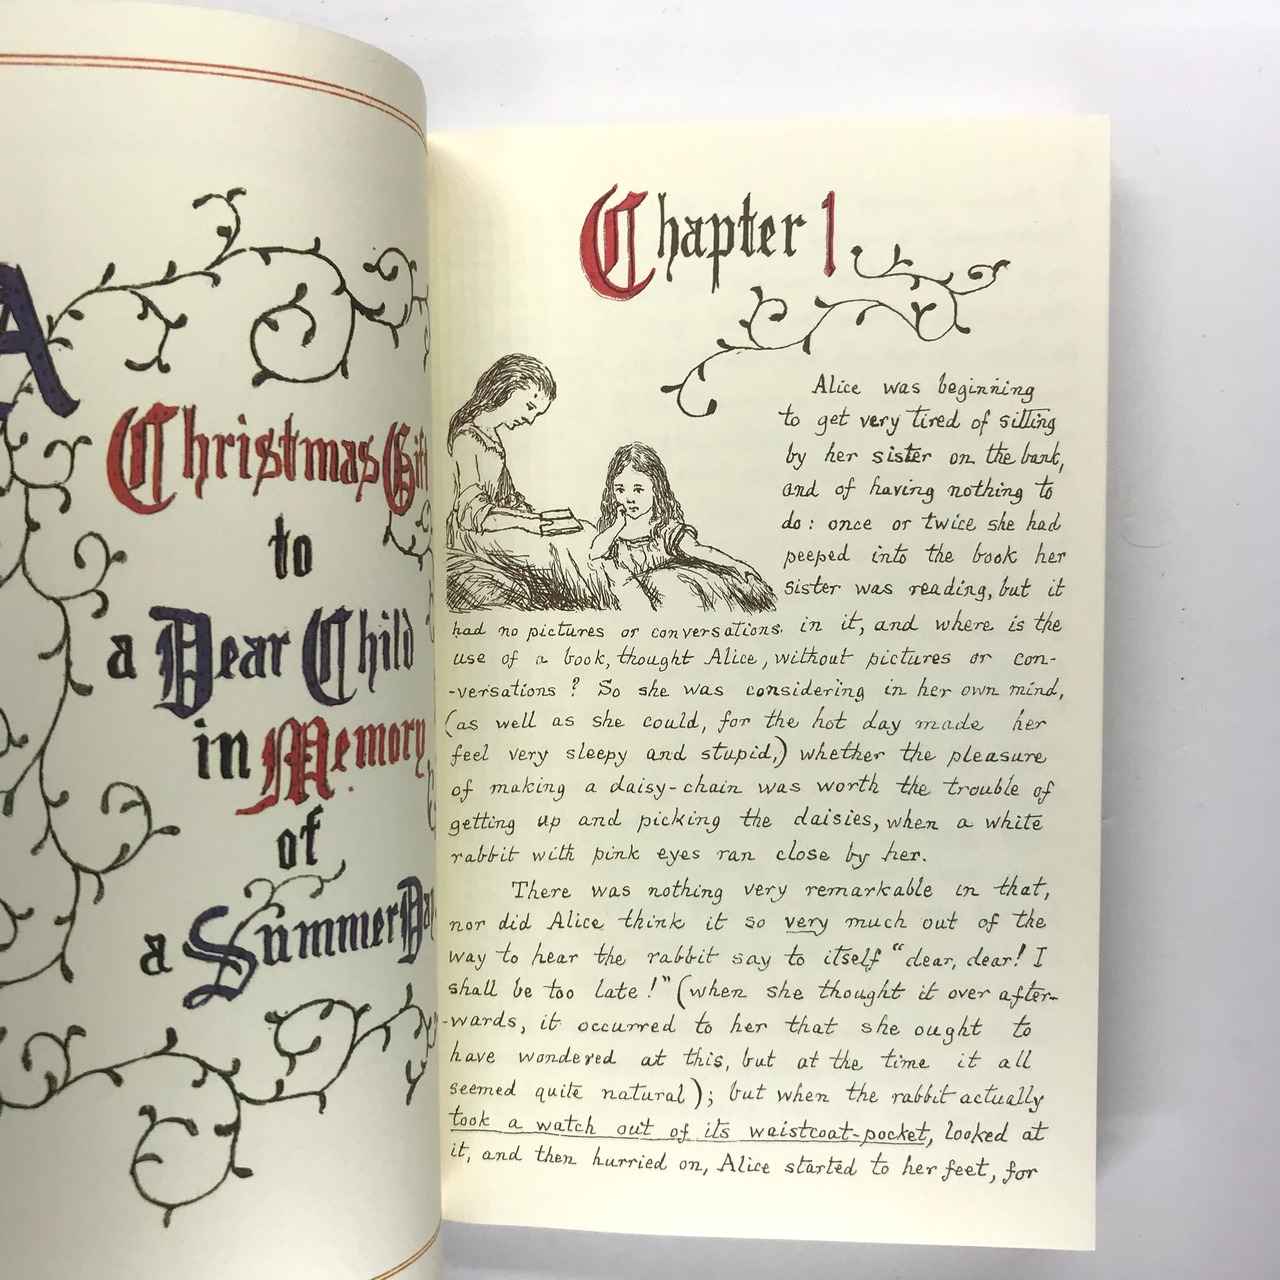 A
Christmas Gift
to
a Dear Child
in Memory
of
a Summer Day
Chapter 1
Alice was beginning
to get very tired of sitting
by her sister on the bank,
and of having nothing to
do: once or twice she had
peeped into the book her
sister was reading, but it
had no pictures or conversations in it, and where is the
use of a book, thought Alice, without pictures or con-
-versations? So she was considering in her own mind,
(as well as she could, for the hot day made her
feel very sleepy and stupid,) whether the pleasure
of making a daisy-chain was worth the trouble of
getting up and picking the daisies, when a white
rabbit with pink eyes ran close by her.
There was nothing very remarkable in that,
nor did Alice think it so very much out of the
way to hear the rabbit say to itself "dear, dear! I
shall be too late!" (when she thought it over after-
-wards, it occurred to her that she ought to
have wondered at this, but at the time it all
seemed quite natural); but when the rabbit actually
took a watch out of its waistcoat-pocket, looked at
it, and then hurried on, Alice started to her feet, for